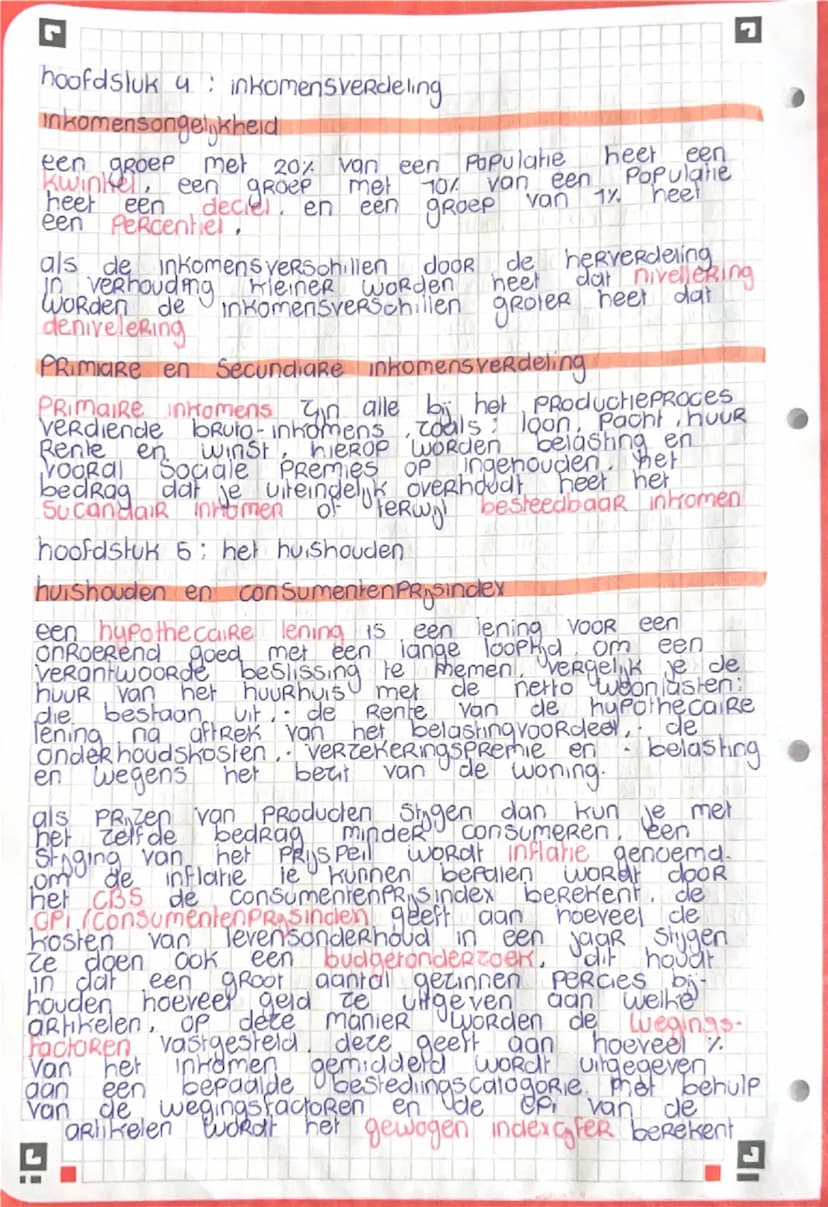 hoofdstuk 4 : inkomensverdeling
inkomensongelijkheid
een groep met 20% van een populatie heet een
kwintiel, een groep met 10% van een populatie
heet een deciel, en een groep van 1% heet
een percentiel.
als de inkomensverschillen door de herverdeling
in verhouding kleiner worden heet dat nivellering
worden de inkomensverschillen groter heet dat
denivelering
primiare en secundiare inkomensverdeling
primaire inkomens zijn alle bij het productieproces
verdiende bruto-inkomens, zoals: loon, pacht, huur
rente en winst, hierop worden belasting en
vooral sociale premies op ingehouden. het
bedrag dat je uiteindelijk overhoudt heet het
sucandair inkomen of terwijl besteedbaar inkomen
hoofdstuk 5 : het huishouden
huishouden en consumentenprijsindex
een hypothecaire lening is een lening voor een
onroerend goed met een lange looptijd. om een
verantwoorde beslissing te nemen, vergelijk je de
huur van het huurhuis met de netto woonlasten:
die bestaan uit, · de rente van de hypothecaire
lening na aftrek van het belastingvoordeel, · de
onderhoudskosten, · verzekeringspremie en · belasting
en wegens het bezit van de woning.
als prijzen van producten stijgen dan kun je met
het zelfde bedrag minder consumeren, een
stijging van het prijspeil wordt inflatie genoemd.
om de inflatie te kunnen bepalen wordt door
het CBS de consumentenprijsindex berekent. de
CPi (consumentenprijsindex) geeft aan hoeveel de
kosten van levensonderhoud in een jaar stijgen
ze doen ook een budgetonderzoek, dit houdt
in dat een groot aantal gezinnen percies bij-
houden hoeveel geld ze uitgeven aan welke
artikelen, op deze manier worden de wegings-
factoren vastgesteld. deze geeft aan hoeveel %
van het inkomen gemiddeld wordt uitgegeven
aan een bepaalde bestedingscatogorie. met behulp
van de wegingsfactoren en de CPi van de
artikelen wordt het gewogen indexcijfer berekent